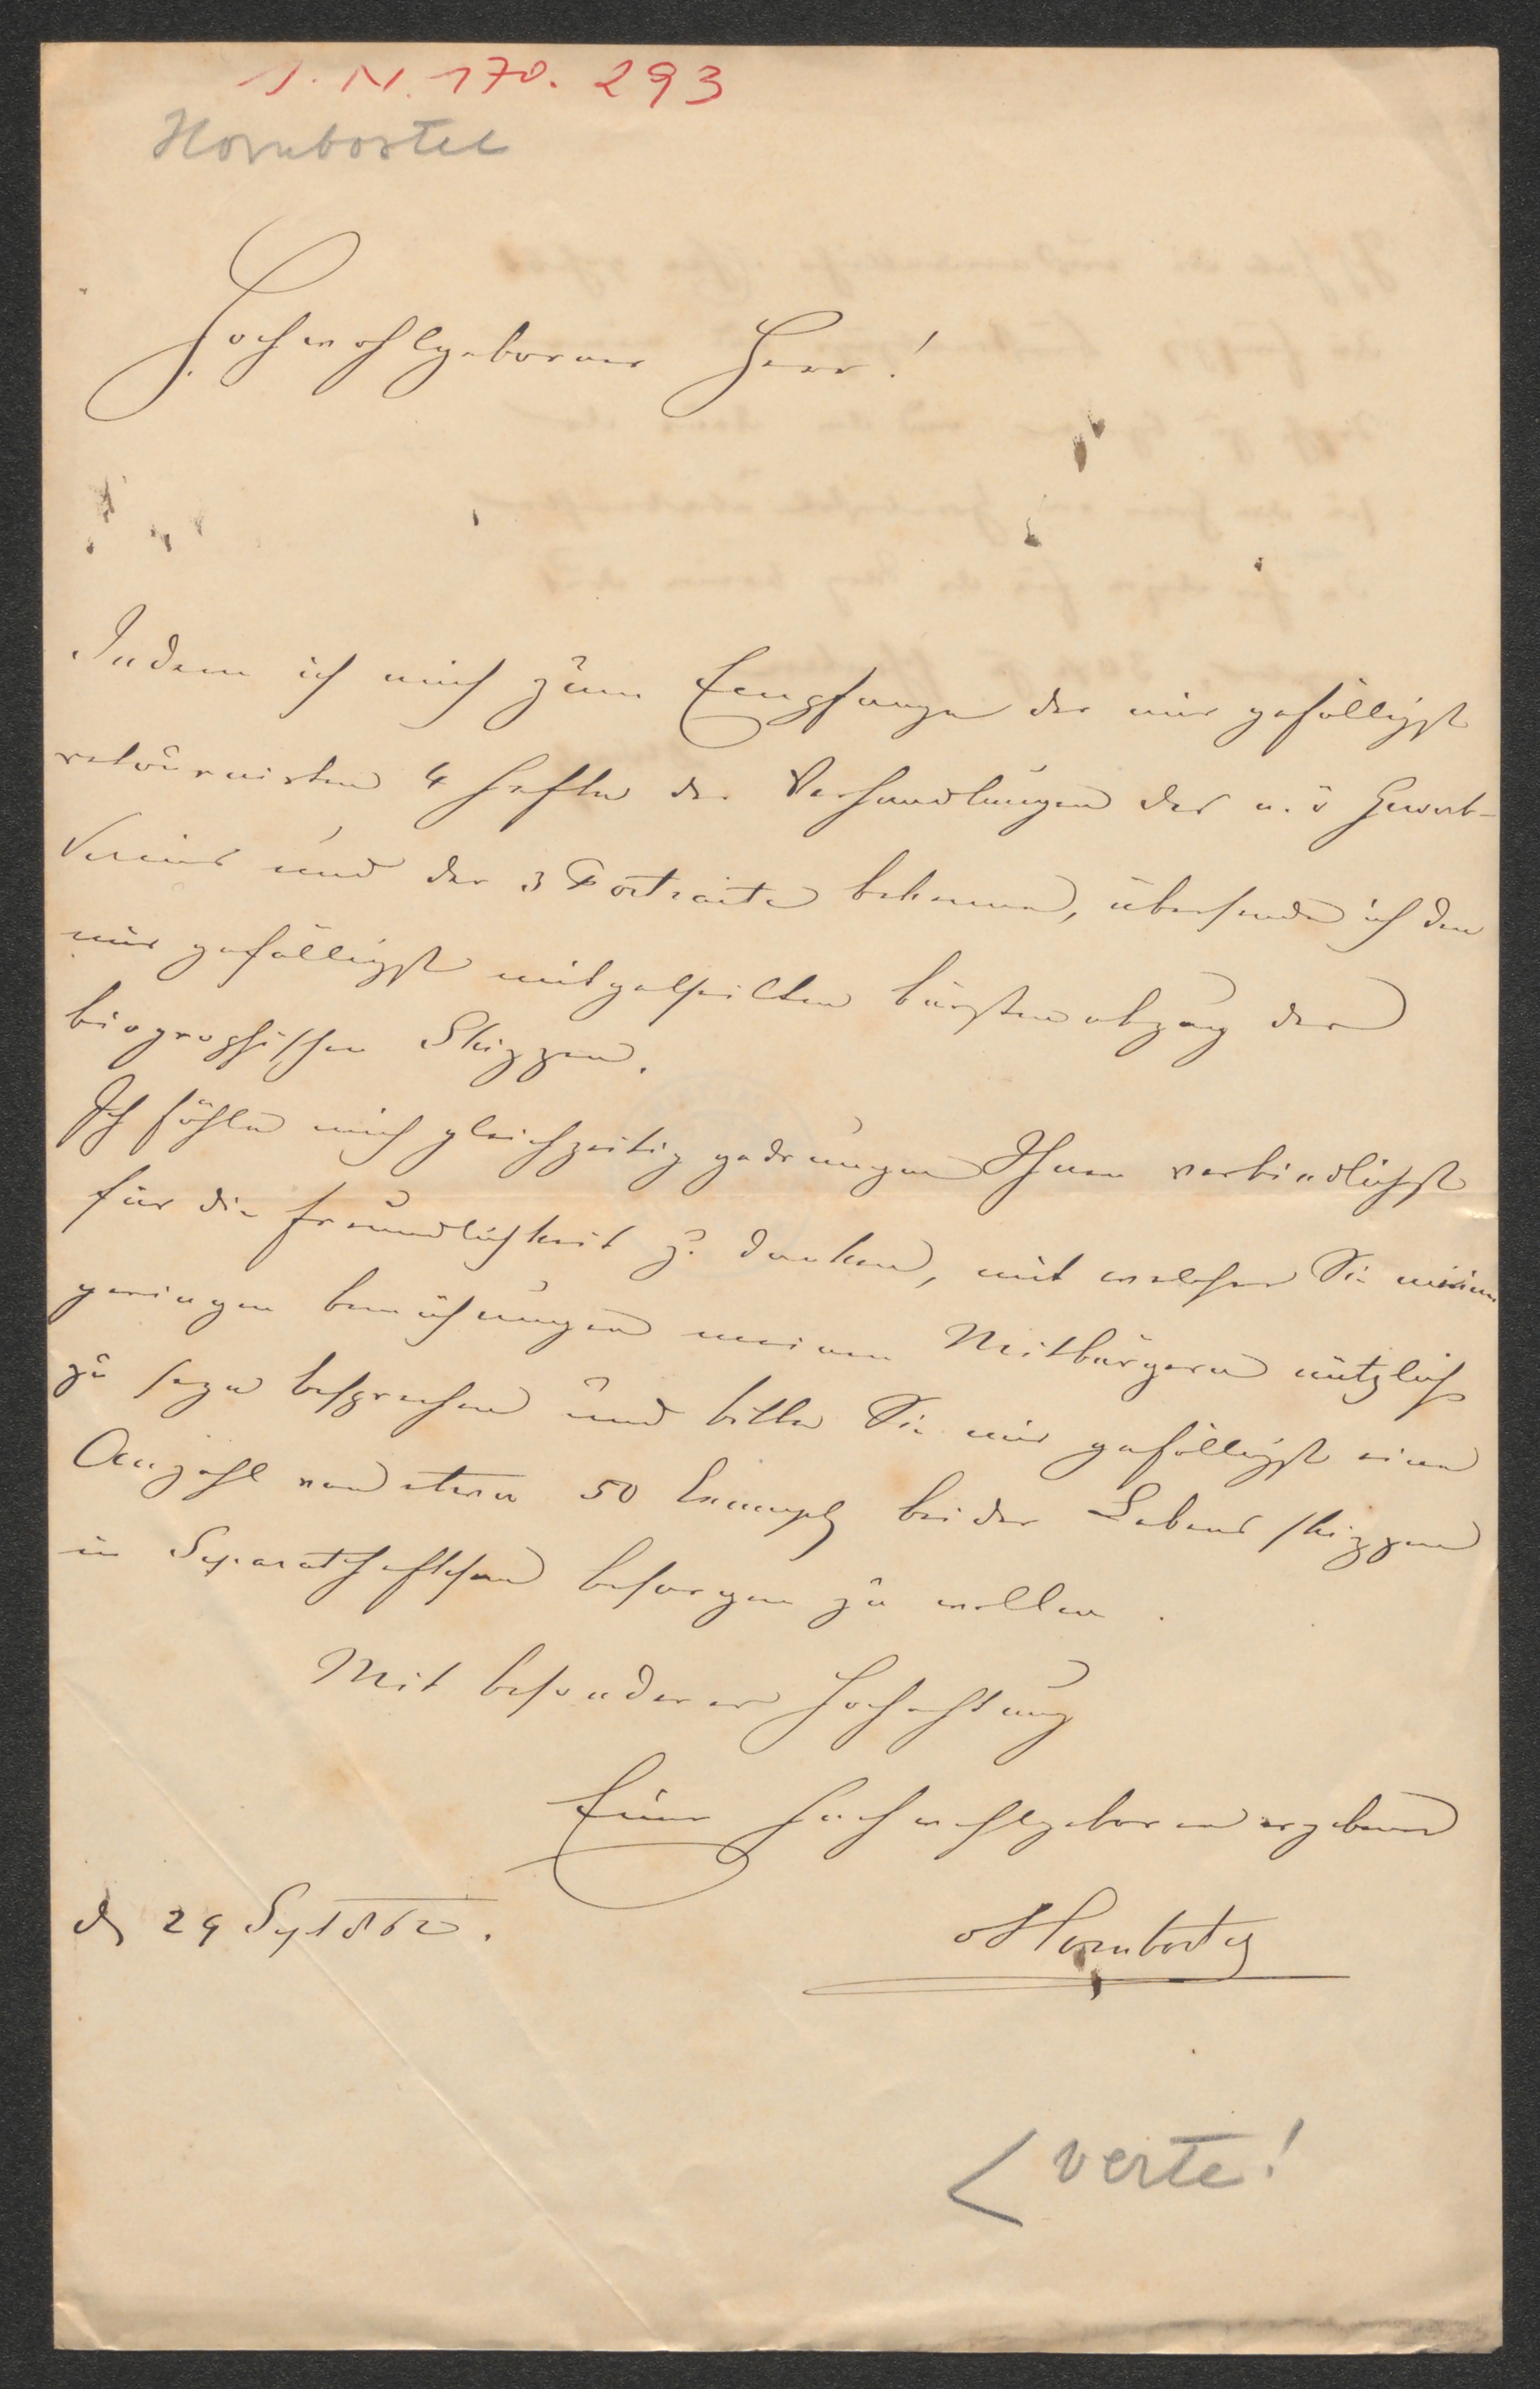 I. N. 170. 293
Hornbostel
Hochwohlgeborner Herr!
Indem ich mich zum Empfange der mir gefälligst
retournirten 4 Hefte der Verhandlungen des n. ö Gewerb-
Vereins und der 3 Portraite bekenne, übersende ich den
mir gefälligst mitgetheilten Bürstenabzug der
biographischen Skizzen.
Ich fühle mich gleichzeitig gedrungen Ihnen verbindlichst
für die Freundlichkeit zu danken, mit welcher Sie meine
geringen Bemühungen meinen Mitbürgern nützlich
zu seyn besprechen und bitte Sie mir gefälligst eine
Anzahl von etwa 50 Exempl beider Lebensskizzen
in Separatheftchen besorgen zu wollen.
Mit besonderer Hochachtung
Euer Hochwohlgeboren ergebener
d 29 Sept 862.
Hornbostel
< verte!